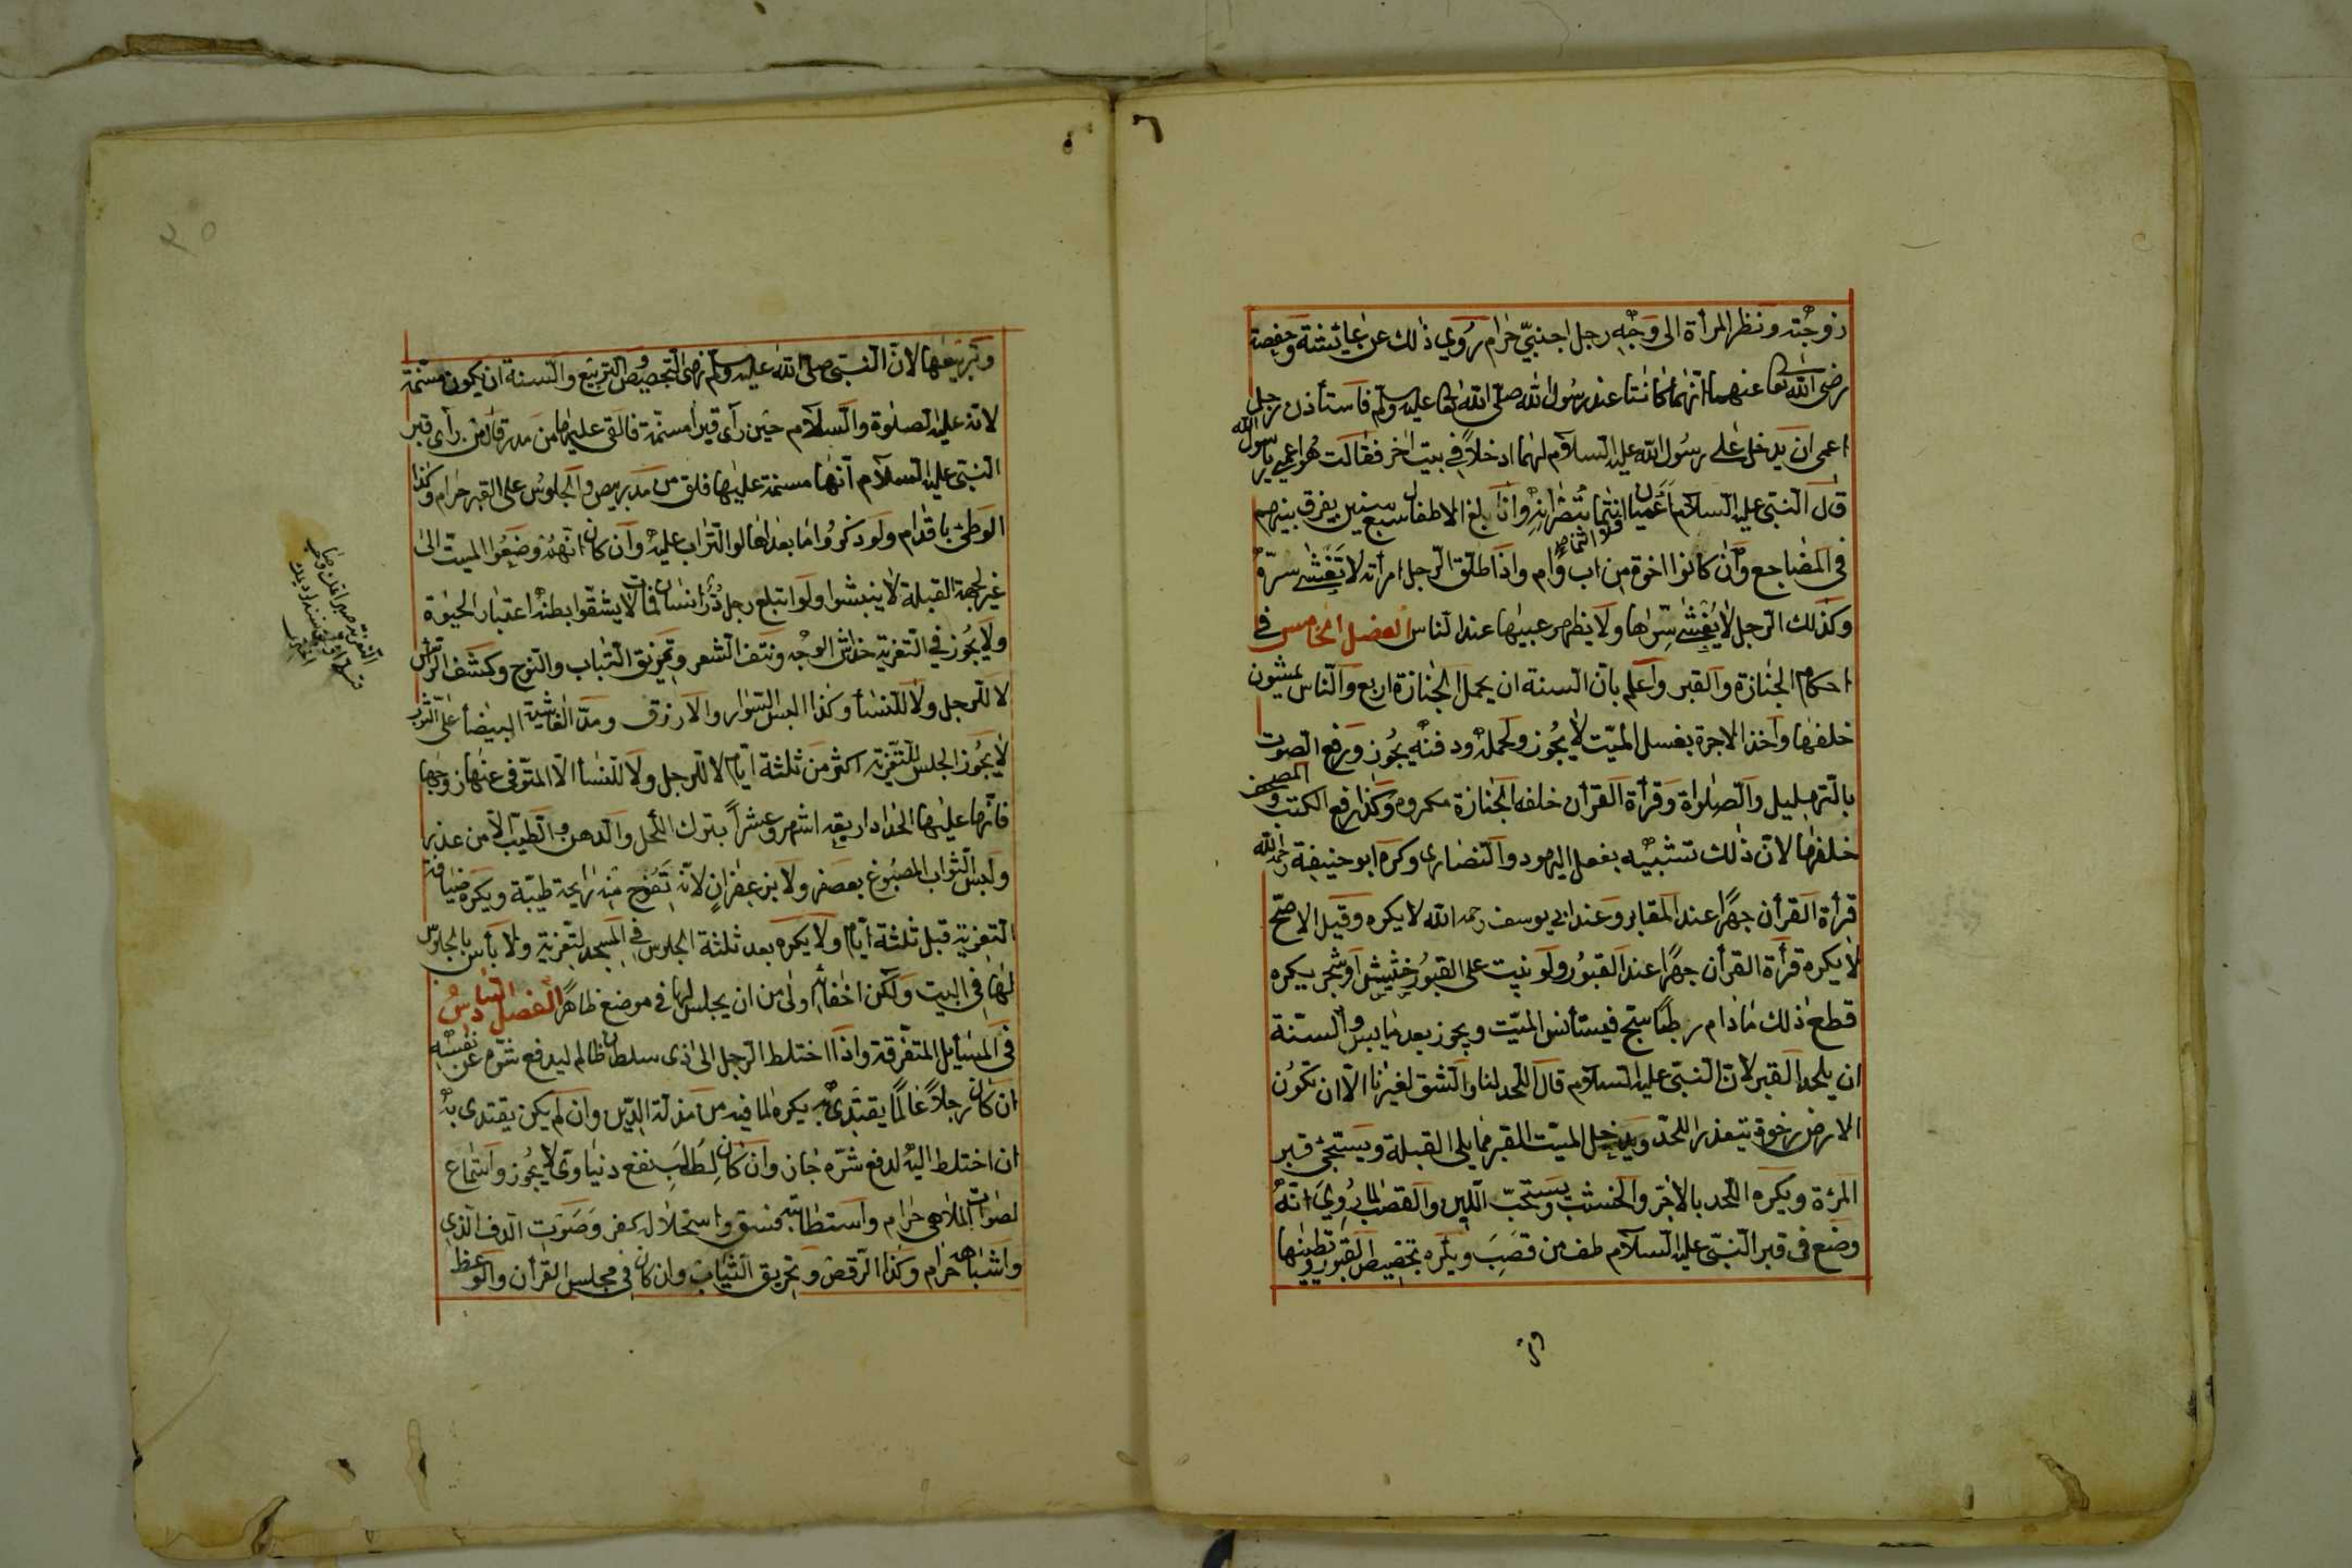 زوجته ونظر المرأة الى وجه رجل اجنبيّ حرام روي ذلك عن عايشة وحفصة
رضى الله تعا عنهما انهما كانتا عند رسول الله صلى الله تعا عليه وسلم فاستأذن رجل
اعمى ان يدخل على رسول الله عليه السلام لهما ادخلا في بيت اخر فقالت هو اعمى يا رسول الله
قال النبى عليه السلام اعميان انتما تبصرانه واذا بلغ الاطفال سبع سنين يفرق بينهم
في المضاجع وان كانوا اخوة من اب وام واذا طلق الرجل امرأته لا تفشى سرّه
وكذلك الرجل لا يفشى سرّها ولا يظهر عيبها عند الناس الفصل الخامس في
احكام الجنازة والقبر واعلم بان السنة ان يحمل الجنازة اربع والناس يمشون
خلفها واخذ الاجرة بغسل الميّت لا يجوز ولحمله ودفنه يجوز ورفع الصوت
بالتهليل والصلواة وقرأة القرأن خلف الجنازة مكروه وكذا رفع الكتب والمصحف
خلفها لانّ ذلك تشبيه بفعل اليهود والنصارى وكره ابو حنيفة رحمه الله
قرأة القرأن جهرا عند المقابر وعند ابى يوسف رحمه الله لا يكره وقيل الاصحّ
لا يكره قرأة القرأن جهرا عند القبور ولو نبت على القبور حشيش او شجر يكره
قطع ذلك مادام رطبا يسبح فيستأنس الميّت ويجوز بعد ما يبس والسنّة
ان يلحد القبر لان النبىّ عليه السلام قال اللحد لنا والشق لغيرنا الّا ان تكون
الارض رخوة يتعذر اللحد ويدخل الميّت القبر مما يلى القبلة ويستجى قبر
المرءة ويكره اللحد بالاجرّ والخشب ويستحبّ اللبن والقصب لما روي انه
وضع في قبر النبىّ عليه السلام طف من قصب ويكره تجصيص القبور وتطينها
وتر
وتربيعها لان النبى صلى الله عليه وسلم نهى التجصيص والتربيع والسنة ان يكون مسنّمة
لانه عليه الصلوة والسلام حين رأى قبرا مسنمة فالقى عليها من مدر قال من رأى قبر
النبى عليه السلام انها مسنمة عليها فلق من مدر بيض والجلوس على القبر حرام وكذا
الوطئ باقدام ولو ذكروا ما بعد اهالوا التراب عليه وان كان انهم وضعوا الميت الى
غير لجهة القبلة لا ينبشوا ولو ابتلع رجل درّ انسان فمات لا يشقّوا بطنه اعتبار الحيوة
ولا يجوز في التعزية خداش الوجه ونتف الشعر وتمزيق الثياب والنوح وكشف الرأس
لا للرجل ولا للنسأ وكذا البس السوار والازرق ومدّ الغاشية البيضأ على الثور
لا يجوز الجلس للتعزية اكثر من ثلثة ايام لا للرجل ولا للنسأ الا المتوفى عنها زوجها
فانها عليها الحداد اربعة اشهر وعشراً بترك الكحل والدهن والطيب الا من عذر
ولبس الثواب المصبوغ بعصفر ولا بزعفران لانه تفوح منه رايحة طيّبة ويكره ضيافة
التعزية قبل ثلثة ايام ولا يكره بعد ثلثة الجلوس في المسجد لتعزية ولا بأس بالجلوس
لها في البيت ولكن اخفاه اولى من ان يجلس لها في موضع ظاهرا الفصل السادس
في المسايل المتفرقة واذا اختلط الرجل الى ذى سلطان ظالم ليدفع شرّه عن نفسه
ان كان رجلاً عالماً يقتدى به يكره لما فيه من مذلة الدّين وان لم يكن يقتدى به
ان اختلط اليه لدفع شرّه جاز وان كان لطلب نفع دنياوى لا يجوز واستماع
لصوات الملاهى حرام واستطابته فسق واستحلاله كفر وصوت الدف الذى
واشباهه حرام وكذا الرقص وتحريق الثياب وان كان في مجلس القرأن والوعظ